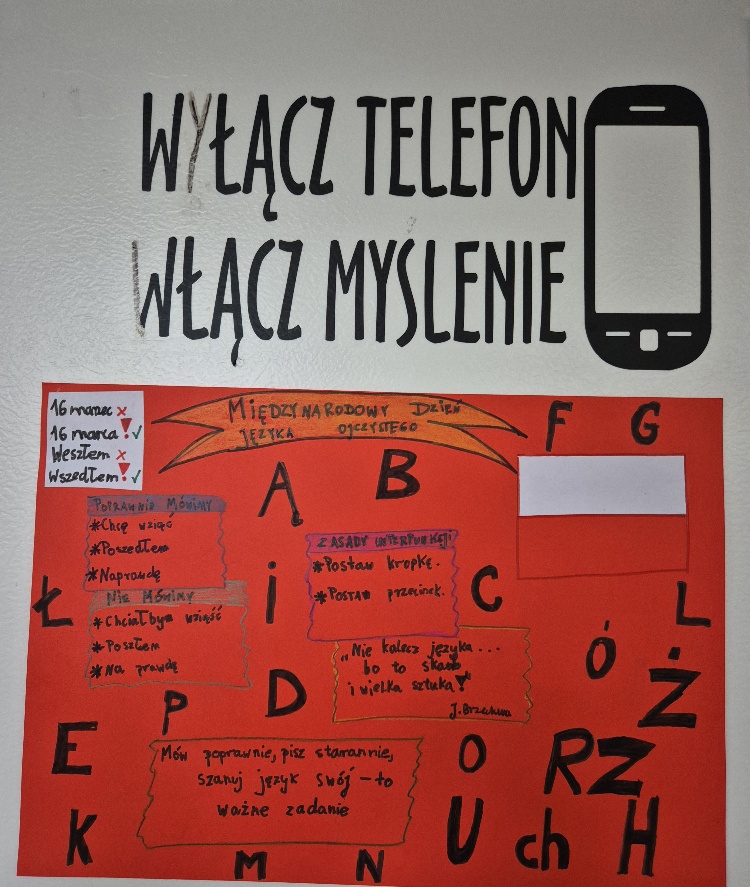 WYŁĄCZ TELEFON
WŁĄCZ MYSLENIE
16 marzec x
16 marca ! ✓
Weszłem x
Wszedłem ! ✓
MIĘDZYNARODOWY DZIEŃ
JĘZYKA OJCZYSTEGO
F G
Ą B
POPRAWNIE MÓWIMY
*Chcę wziąć
*Poszedłem
*Naprawdę
NIE MÓWIMY
*Chciałbym wziąść
*Poszłem
*Na prawdę
ZASADY INTERPUNKCJI
*Postaw kropkę.
*POSTAW przecinek.
Ł i C L
„Nie kalecz języka...
bo to skarb
i wielka sztuka!"
J. Brzechwa
Ó Ż
P D
E O RZ
Mów poprawnie, pisz starannie,
szanuj język swój – to
ważne zadanie
K U ch H
M N